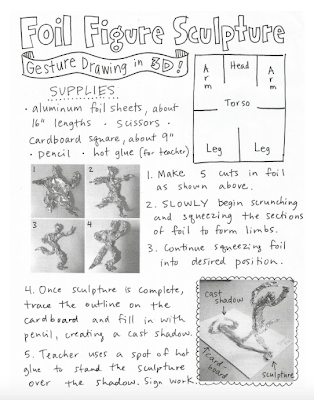 Foil Figure Sculpture
Gesture Drawing in 3D!
SUPPLIES
· aluminum foil sheets, about
16" lengths · scissors ·
cardboard square, about 9"
· pencil · hot glue (for teacher)
Arm
Head
Arm
Torso
Leg
Leg
1
2
3
4
1. Make 5 cuts in foil
as shown above.
2. SLOWLY begin scrunching
and squeezing the sections
of foil to form limbs.
3. Continue squeezing foil
into desired position.
4. Once sculpture is complete,
trace the outline on the
cardboard and fill in with
pencil, creating a cast shadow.
5. Teacher uses a spot of hot
glue to stand the sculpture
over the shadow. Sign work.
cast
shadow
card
board
sculpture